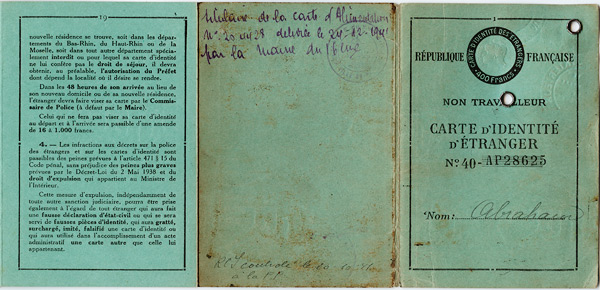 19
nouvelle résidence se trouve, soit dans les dépar-
tements du Bas-Rhin, du Haut-Rhin ou de la
Moselle, soit dans tout autre département spécia-
lement interdit ou pour lequel sa carte d'identité
ne lui confère pas le droit de séjour, il devra
obtenir, au préalable, l'autorisation du Préfet
dont dépend la localité où il désire se rendre.
Dans les 48 heures de son arrivée au lieu de
son nouveau domicile ou de sa nouvelle résidence,
l'étranger devra faire viser sa carte par le Commis-
saire de Police (à défaut par le Maire).
Celui qui ne fera pas viser sa carte d'identité
au départ et à l'arrivée sera passible d'une amende
de 16 à 1.000 francs.
4. — Les infractions aux décrets sur la police
des étrangers et sur les cartes d'identité sont
passibles des peines prévues à l'article 471 § 15 du
Code pénal, sans préjudice des peines plus graves
prévues par le Décret-Loi du 2 Mai 1938 et du
droit d'expulsion qui appartient au Ministre de
l'Intérieur.
Cette mesure d'expulsion, indépendamment de
toute autre sanction judiciaire, pourra être prise
également à l'égard de tout étranger qui aura fait
une fausse déclaration d'état-civil ou qui se sera
servi de fausses pièces d'identité, qui aura gratté,
surchargé, imité, falsifié une carte d'identité ou
qui aura utilisé dans l'accomplissement d'un acte
administratif une carte autre que celle lui
appartenant.
Titulaire de la carte d'Alimentation
N° délivrée le 24-12-194
par la Mairie du
contrôlé le
à la
1
RÉPUBLIQUE FRANÇAISE
CARTE D'IDENTITÉ DES ÉTRANGERS
400 Francs
NON TRAVAILLEUR
CARTE D'IDENTITÉ
D'ÉTRANGER
No. 40-AP28625
Nom: Abraham